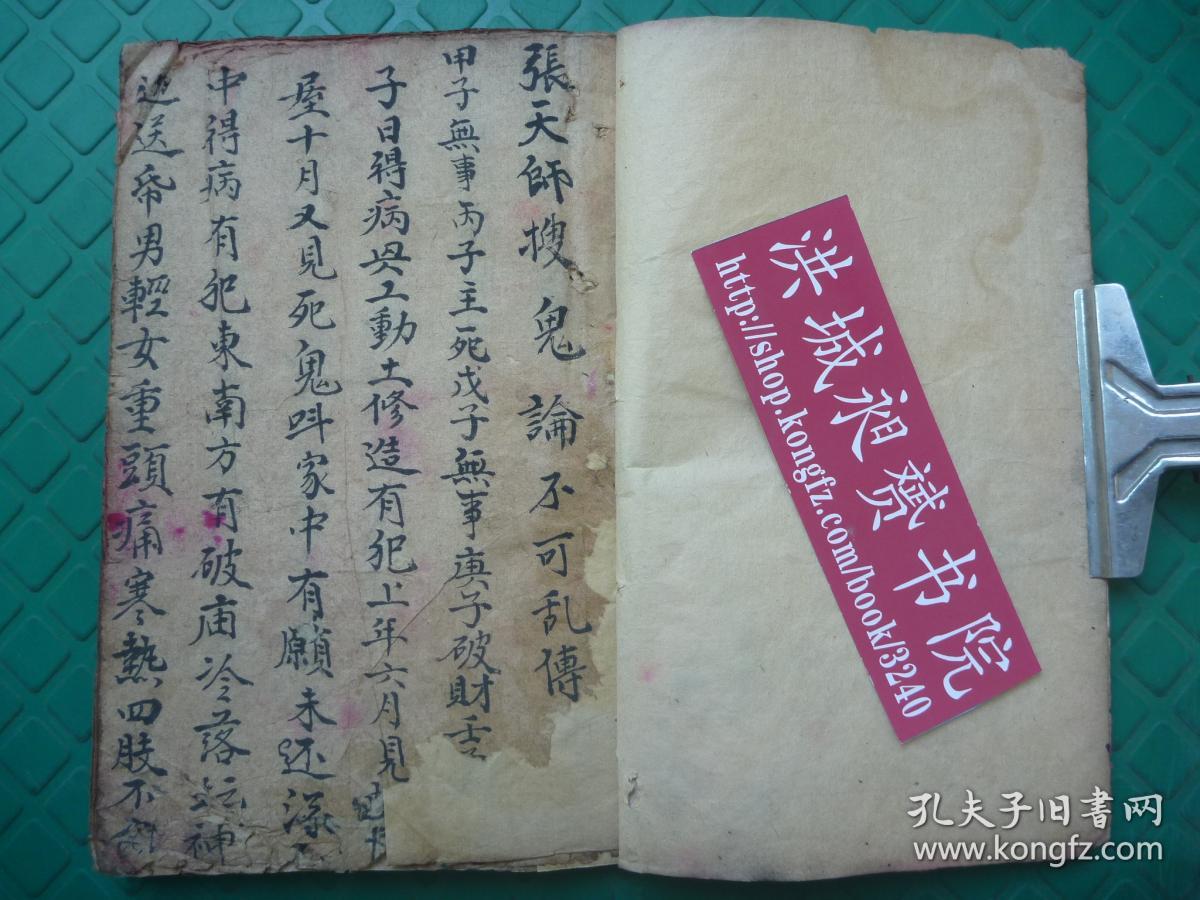 張天師搜鬼論不可乱傳
甲子無事丙子主死戊子無事庚子破財舌
子日得病因工動土修造有犯上年六月見
屋十月又見死鬼叫家中有願未还
中得病有犯東南方有破庙冷落坛神
送男輕女重頭痛寒熱四肢不
洪城昶赟书院
http://shop.kongfz.com/book/3240
孔夫子旧书网
www.kongfz.com